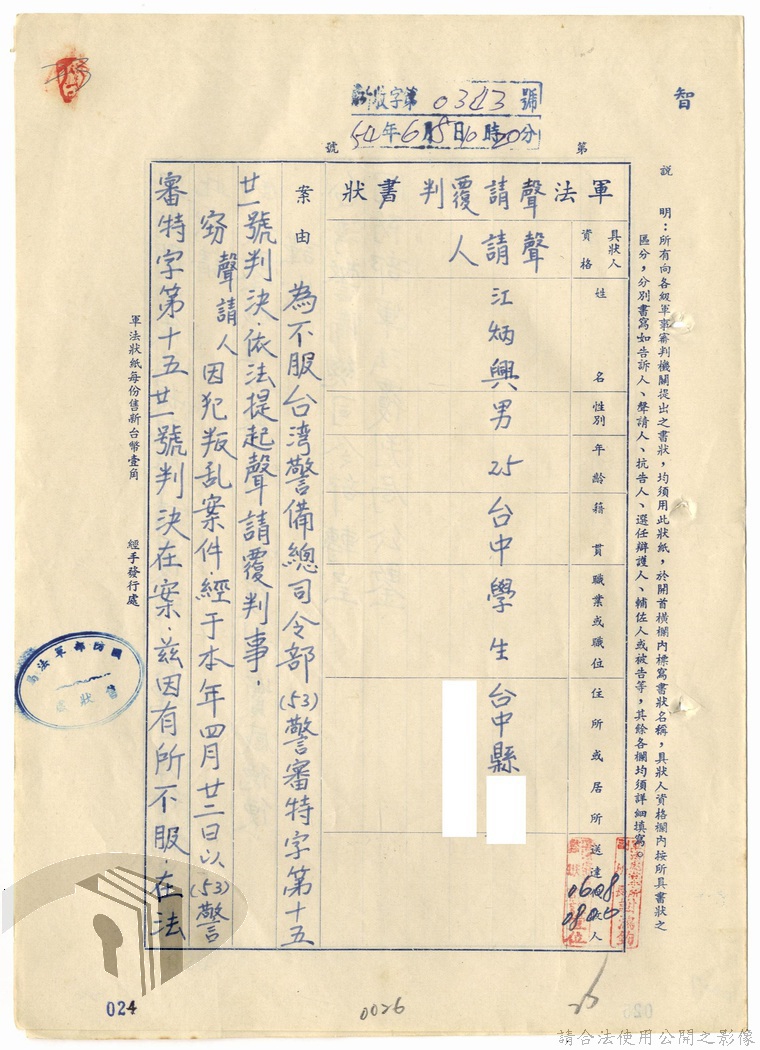 智
新收字第0343號
54年6月8日10時20分
第
號
說 明：所有向各級軍事審判機關提出之書狀，均須用此狀紙，於開首橫欄內標寫書狀名稱，具狀人資格欄內按所具書狀之
區分，分別書寫如告訴人、聲請人、抗告人、選任辯護人、輔佐人或被告等，其餘各欄均須詳細填寫。
軍法聲請覆判書狀
具狀人
資格
聲請人
姓 名
性別
年齡
籍貫
職業或職位
住所或居所
送達
人
江炳興
男
25
台中
學生
台中縣
0608
0800
案由
為不服台湾警備總司令部(53)警審特字第十五
廿一號判決.依法提起聲請覆判事.
窃聲請人因犯叛乱案件經于本年四月廿二日以(53)警
審特字第十五廿一號判決在案.茲因有所不服.在法
軍法狀紙每份售新台幣壹角
經手發行處
國防部軍法局
書狀
024
0026
26
請合法使用公開之影像